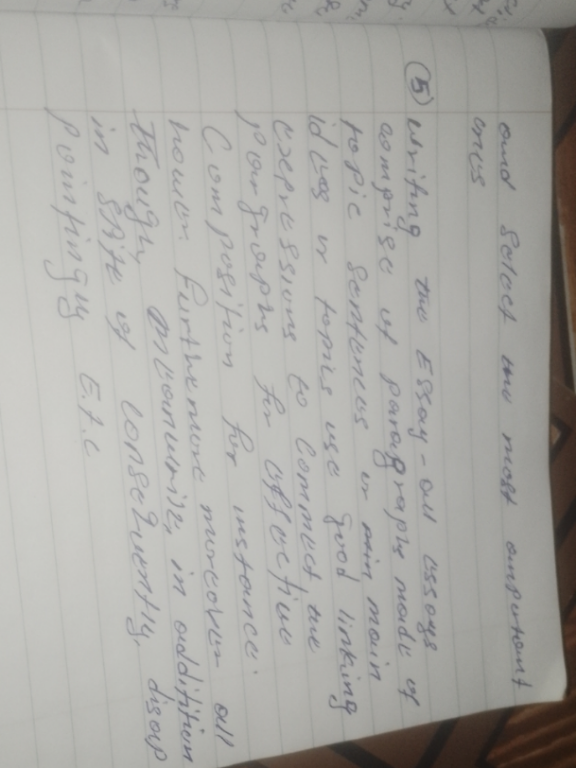 and select the most important
ones
(5) Writing the Essay - all essays
comprise of paragraph made of
topic sentences or main main
ideas or topics use good linking
expressions to connect the
paragraphs for effective
Composition for instance.
howev. Furthemore moreover all
though, meanwhile, in addittion
in Spite of consequently, disap
pointingly E.t.c